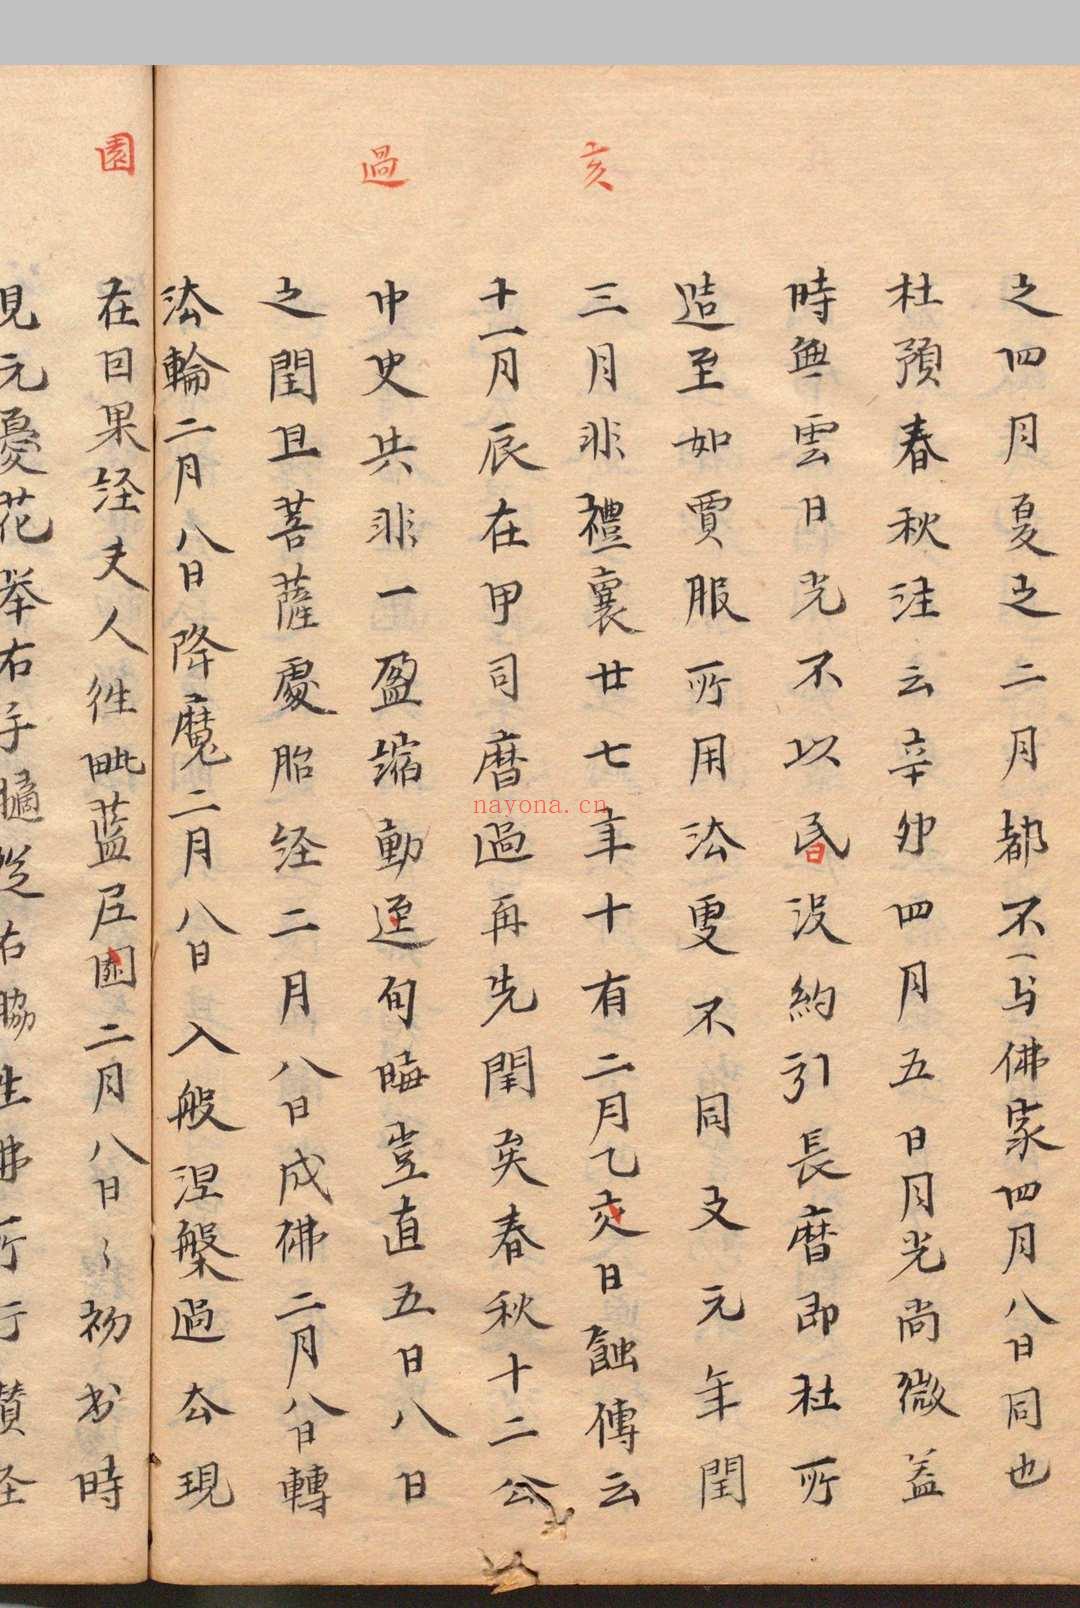 亥
過
園
之四月夏之二月都不与佛家四月八日同也
杜預春秋注云辛卯四月五日月光尚微盖
時無雲日光不以昏没約引長曆即杜所
造至如賈服所用法更不同文元年閏
三月非禮襄廿七年十有二月乙亥日蝕傳云
十一月辰在甲司曆過再先閏矣春秋十二公
中史共非一盈縮動逕旬晦豈直五日八日
之閏且菩薩處胎经二月八日成佛二月八日轉
法輪二月八日降魔二月八日入般涅槃過去現
在因果经夫人往毗藍尼園二月八日〻初出時
見元憂花举右手摘從右脇生佛所行讃圣
nayona.cn